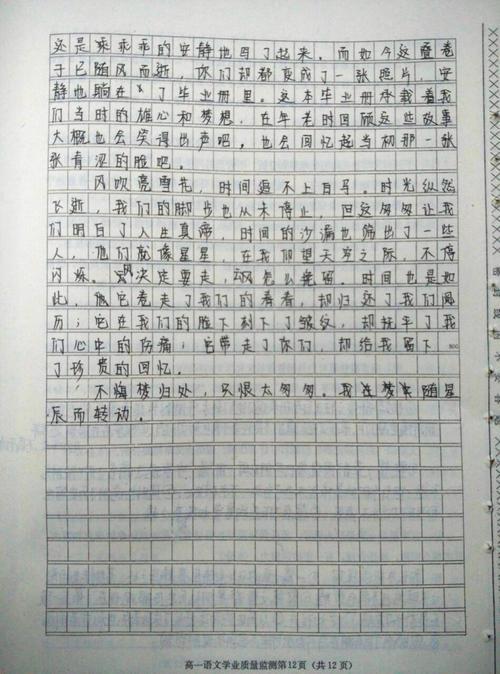 还是乖乖乖的安静地写了起来。而如今这叠卷
子已随风而逝，你们却都变成了一张照片，安
静地躺在了毕业册里。这本毕业册承载着我
们当时的雄心和梦想，在年老时回顾这些故事
大概也会笑得出声吧，也会回忆起当初那一张
张青涩的脸吧。
风吹亮雪花，时间追不上白马。时光纵然
飞逝，我们的脚步也从未停止，但这匆匆让我
们明白了人生真谛，时间的沙漏也筛出了一些
人，他们就像星星，在我仰望天空之际，不停
闪烁。风决定要走，云怎么挽留。时间也是如
此，它卷走了我们的青春，却归还了我们阅
历；它在我们的脸下刻下了皱纹，却抚平了我
们心中的伤痛；它带走了你们，却给我留下
800
了珍贵的回忆。
不悔梦归处，只恨太匆匆。我在梦里随星
辰而转动。
高一语文学业质量监测第12页（共12页）